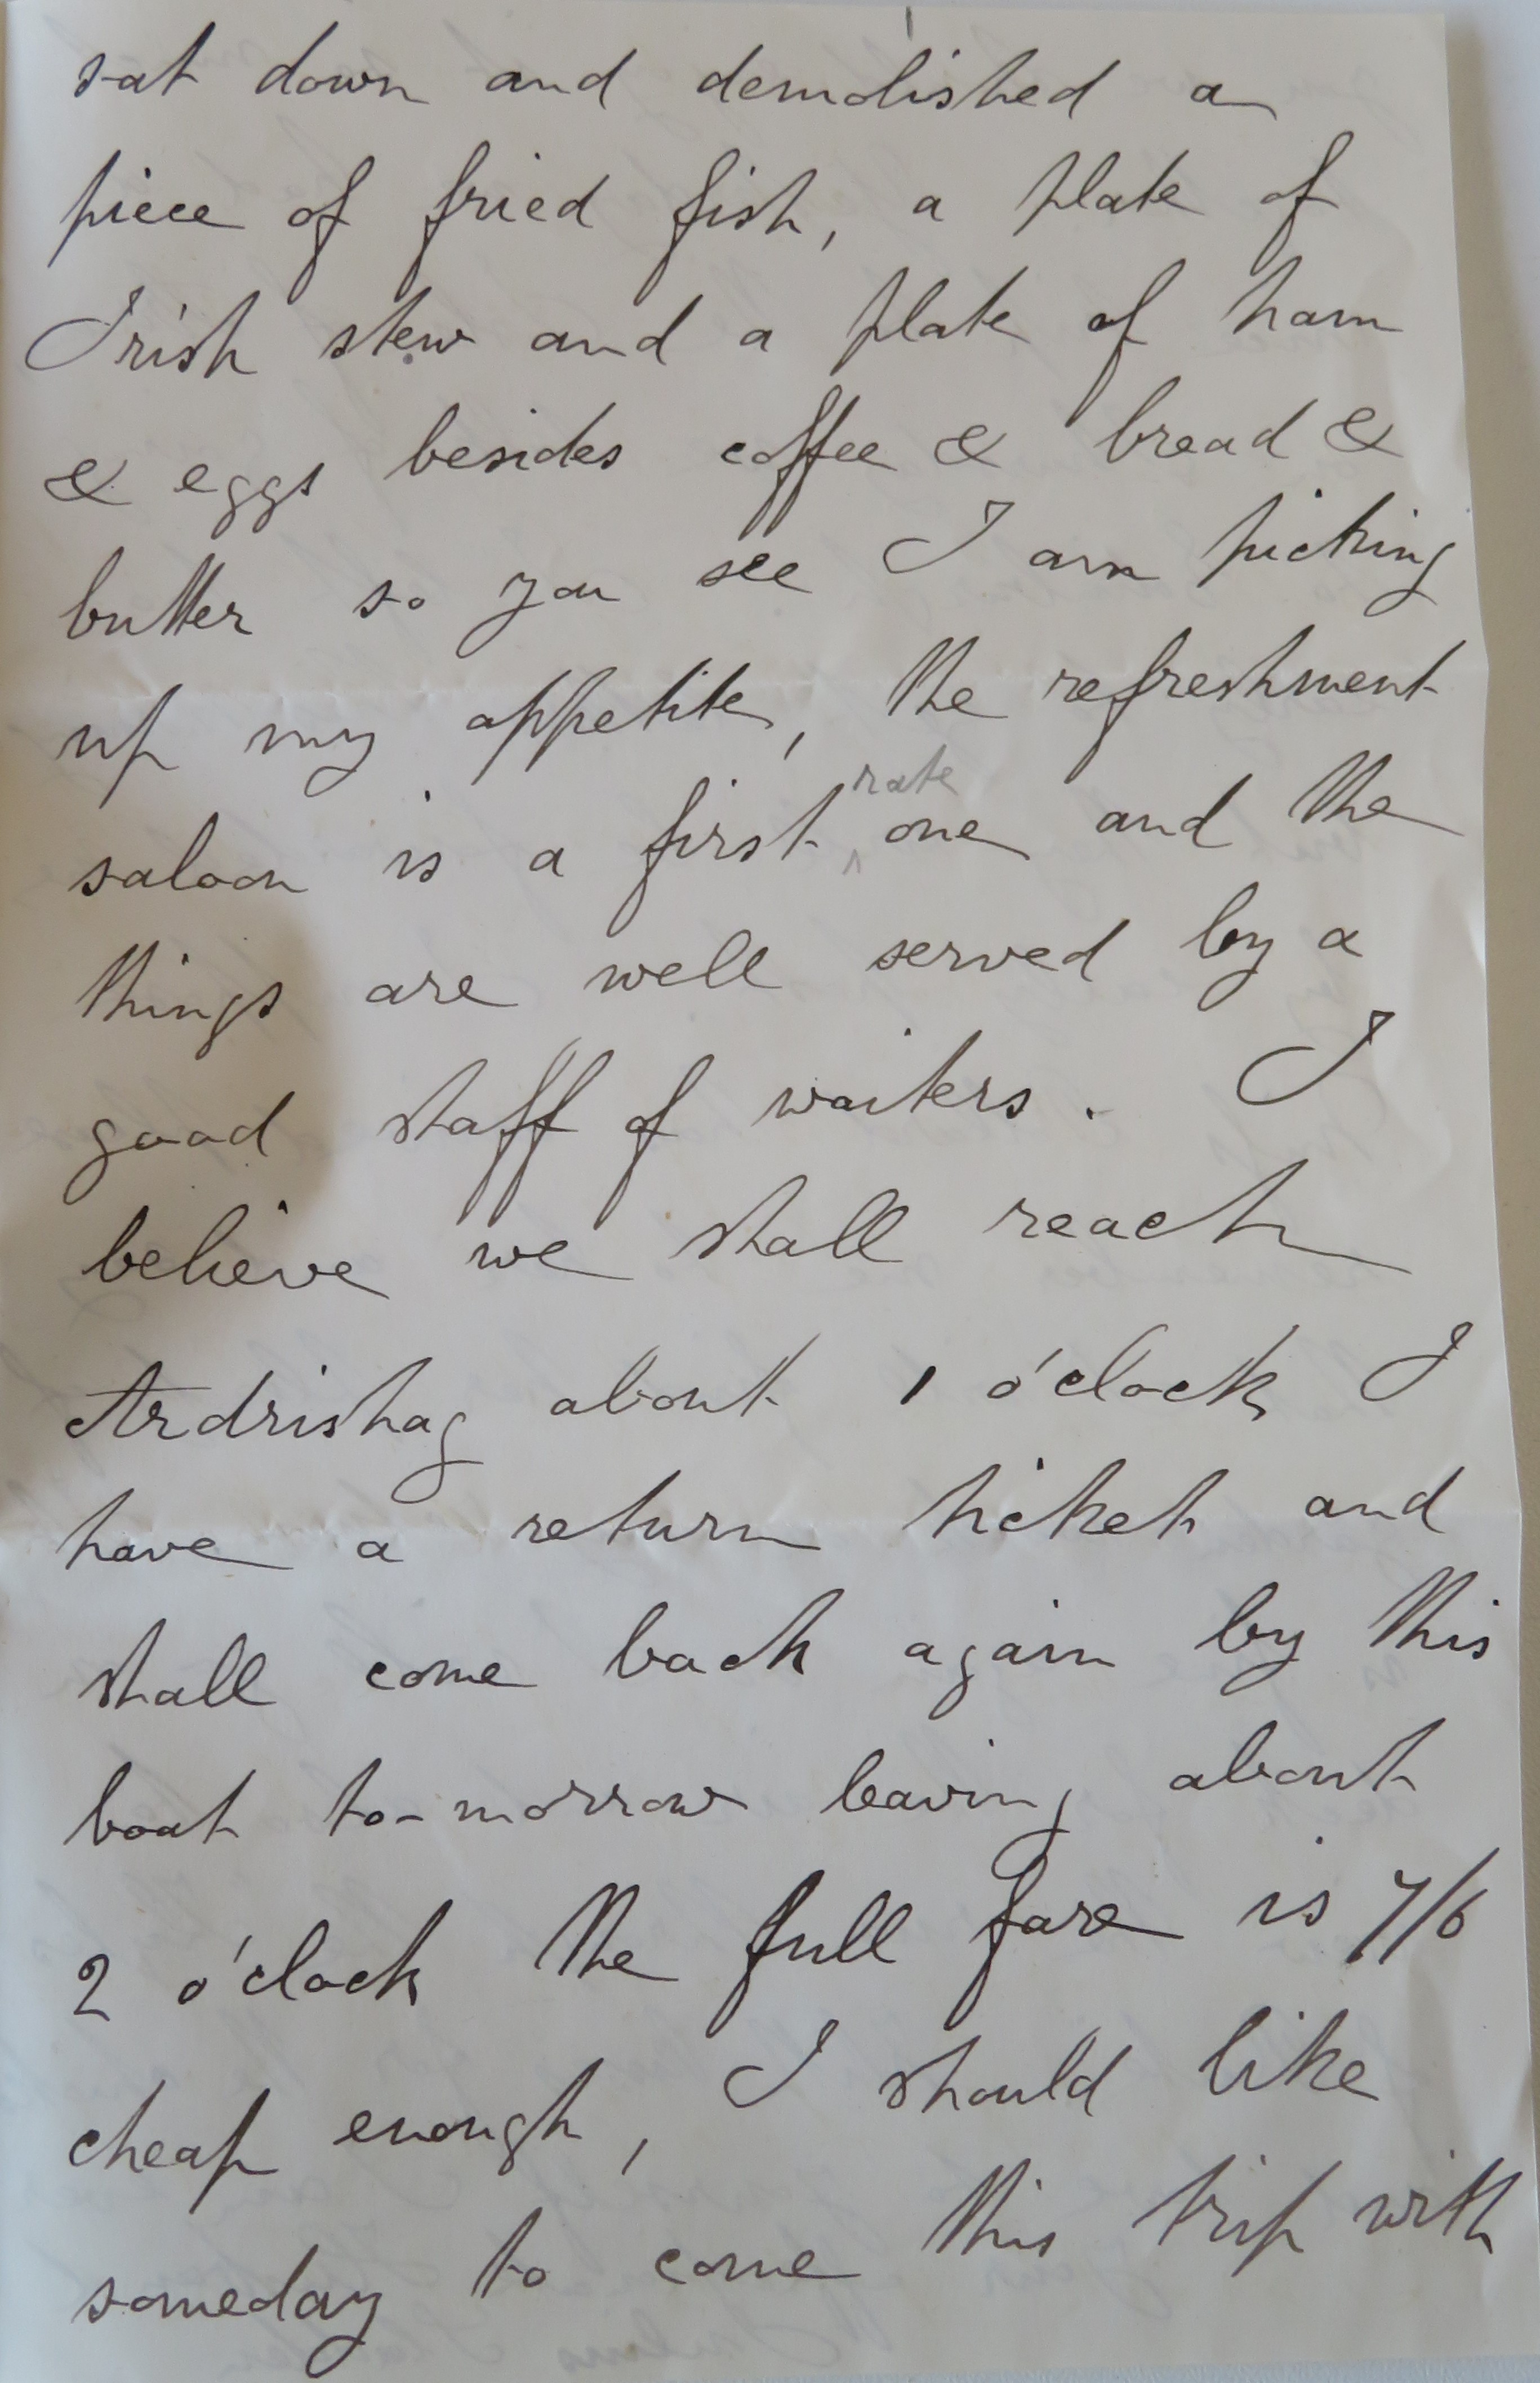 sat down and demolished a
piece of fried fish, a plate of
Irish stew and a plate of ham
& eggs besides coffee & bread &
butter so you see I am picking
up my appetite, the refreshment
saloon is a first ^rate one and the
things are well served by a
good staff of waiters. I
believe we shall reach
Ardrishag about 1 o'clock I
have a return ticket and
shall come back again by this
boat to-morrow leaving about
2 o'clock the full fare is 7/6
cheap enough, I should like
someday to come this trip with